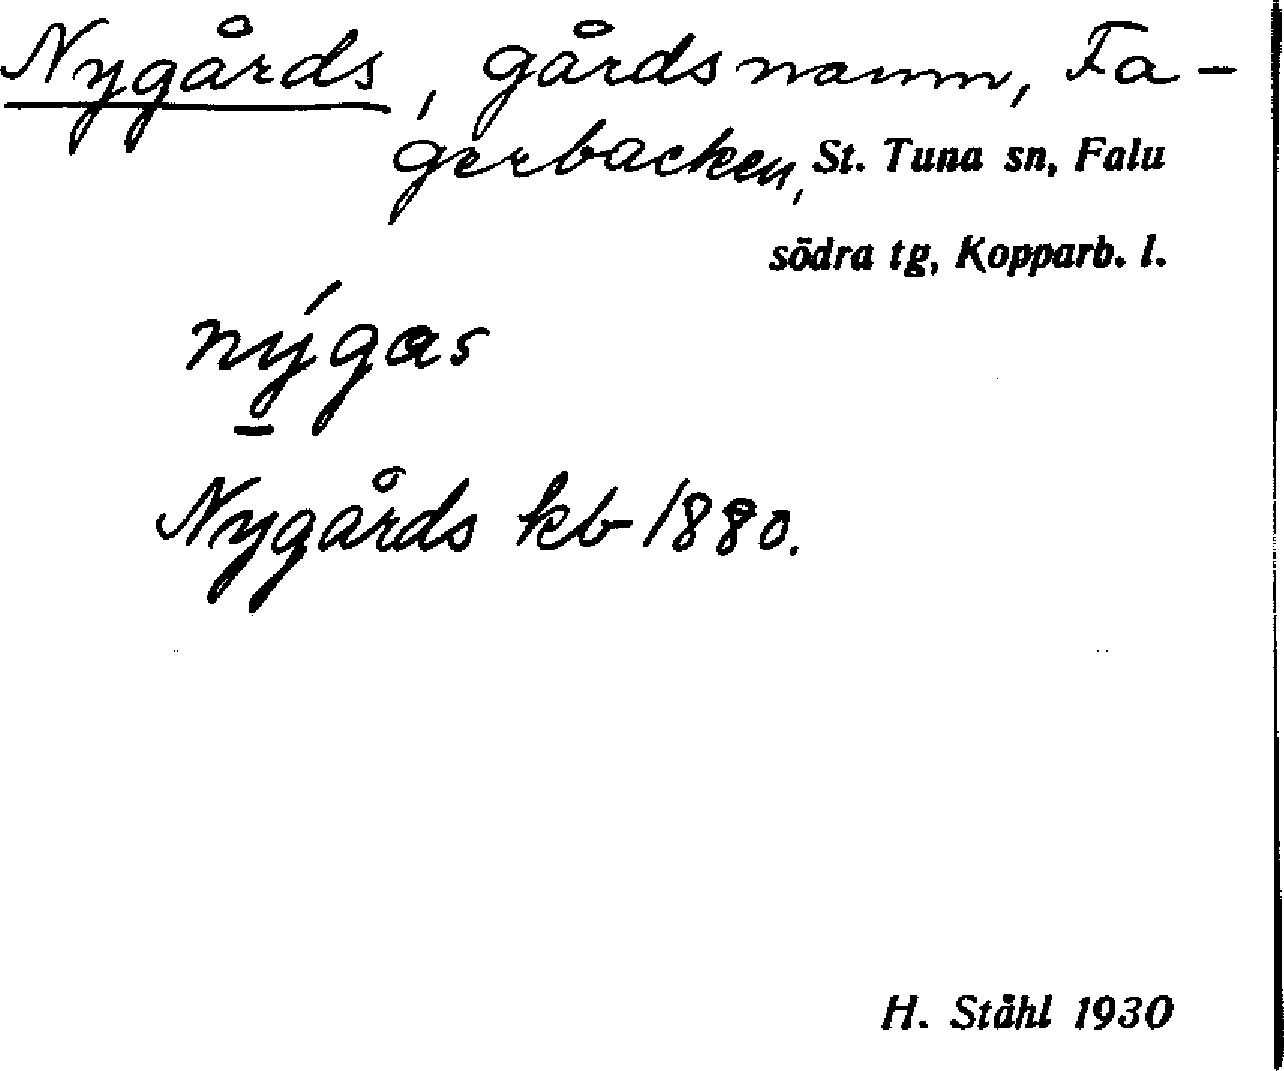 Nygårds, gårdsnamn, Fa-
gerbacken, St. Tuna sn, Falu
södra tg, Kopparb. l.
nýgas
Nygårds kb 1880.
H. Ståhl 1930